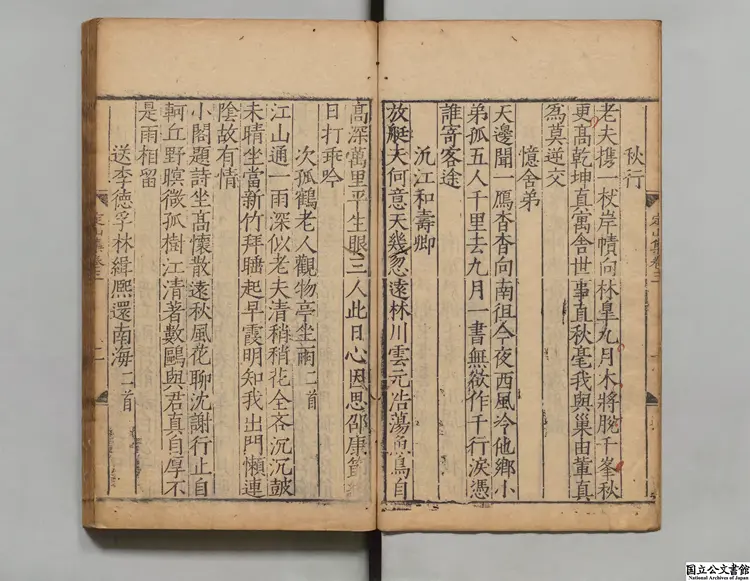 秋行
老夫携 杖岸幘向林皐九月木將脫千峯秋
更髙乾坤真寓舎世事直秋毫我與巢由董真
為莫逆交
憶舍弟
天邊聞一鴈杳杳向南徂今夜西風冷他鄉小
弟孤五人千里去九月一書無欲作千行淚憑
誰寄客途
沉江和壽卿
放艇天何意天幾忽遠林川雲元浩蕩魚鳥自
髙深萬里平生眼三人此日心因思邵康節
日打乖吟
次孤鶴老人觀物亭坐雨二首
江山通一雨深似老夫清稍稍花全吝沉沉鼓
未晴坐當新竹拜睡起早霞明知我出門懶連
陰故有情
小閣題詩坐髙懷散遠秋風花聊沈謝行止自
軻丘野暝微孤樹江清著數鷗與君真自厚不
是雨相留
送李德孚林緝熈還南海二首
定山集卷三
国立公文書館
National Archives of Japan